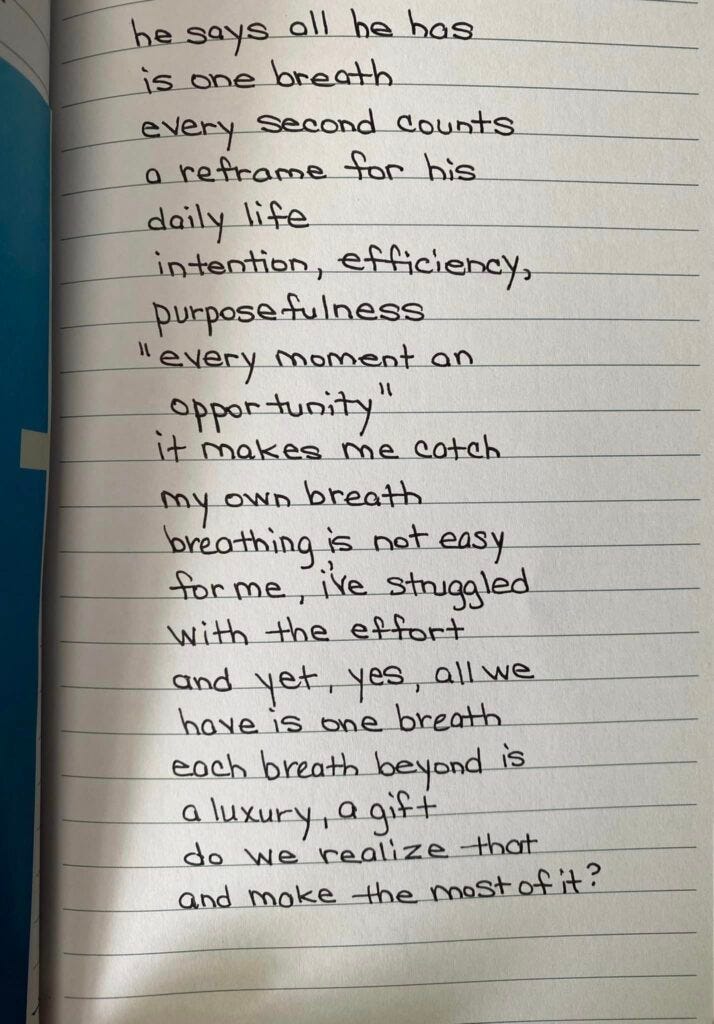 he says all he has
is one breath
every second counts
a reframe for his
daily life
intention, efficiency,
purposefulness
"every moment an
opportunity"
it makes me catch
my own breath
breathing is not easy
for me, i've struggled
with the effort
and yet, yes, all we
have is one breath
each breath beyond is
a luxury, a gift
do we realize that
and make the most of it?